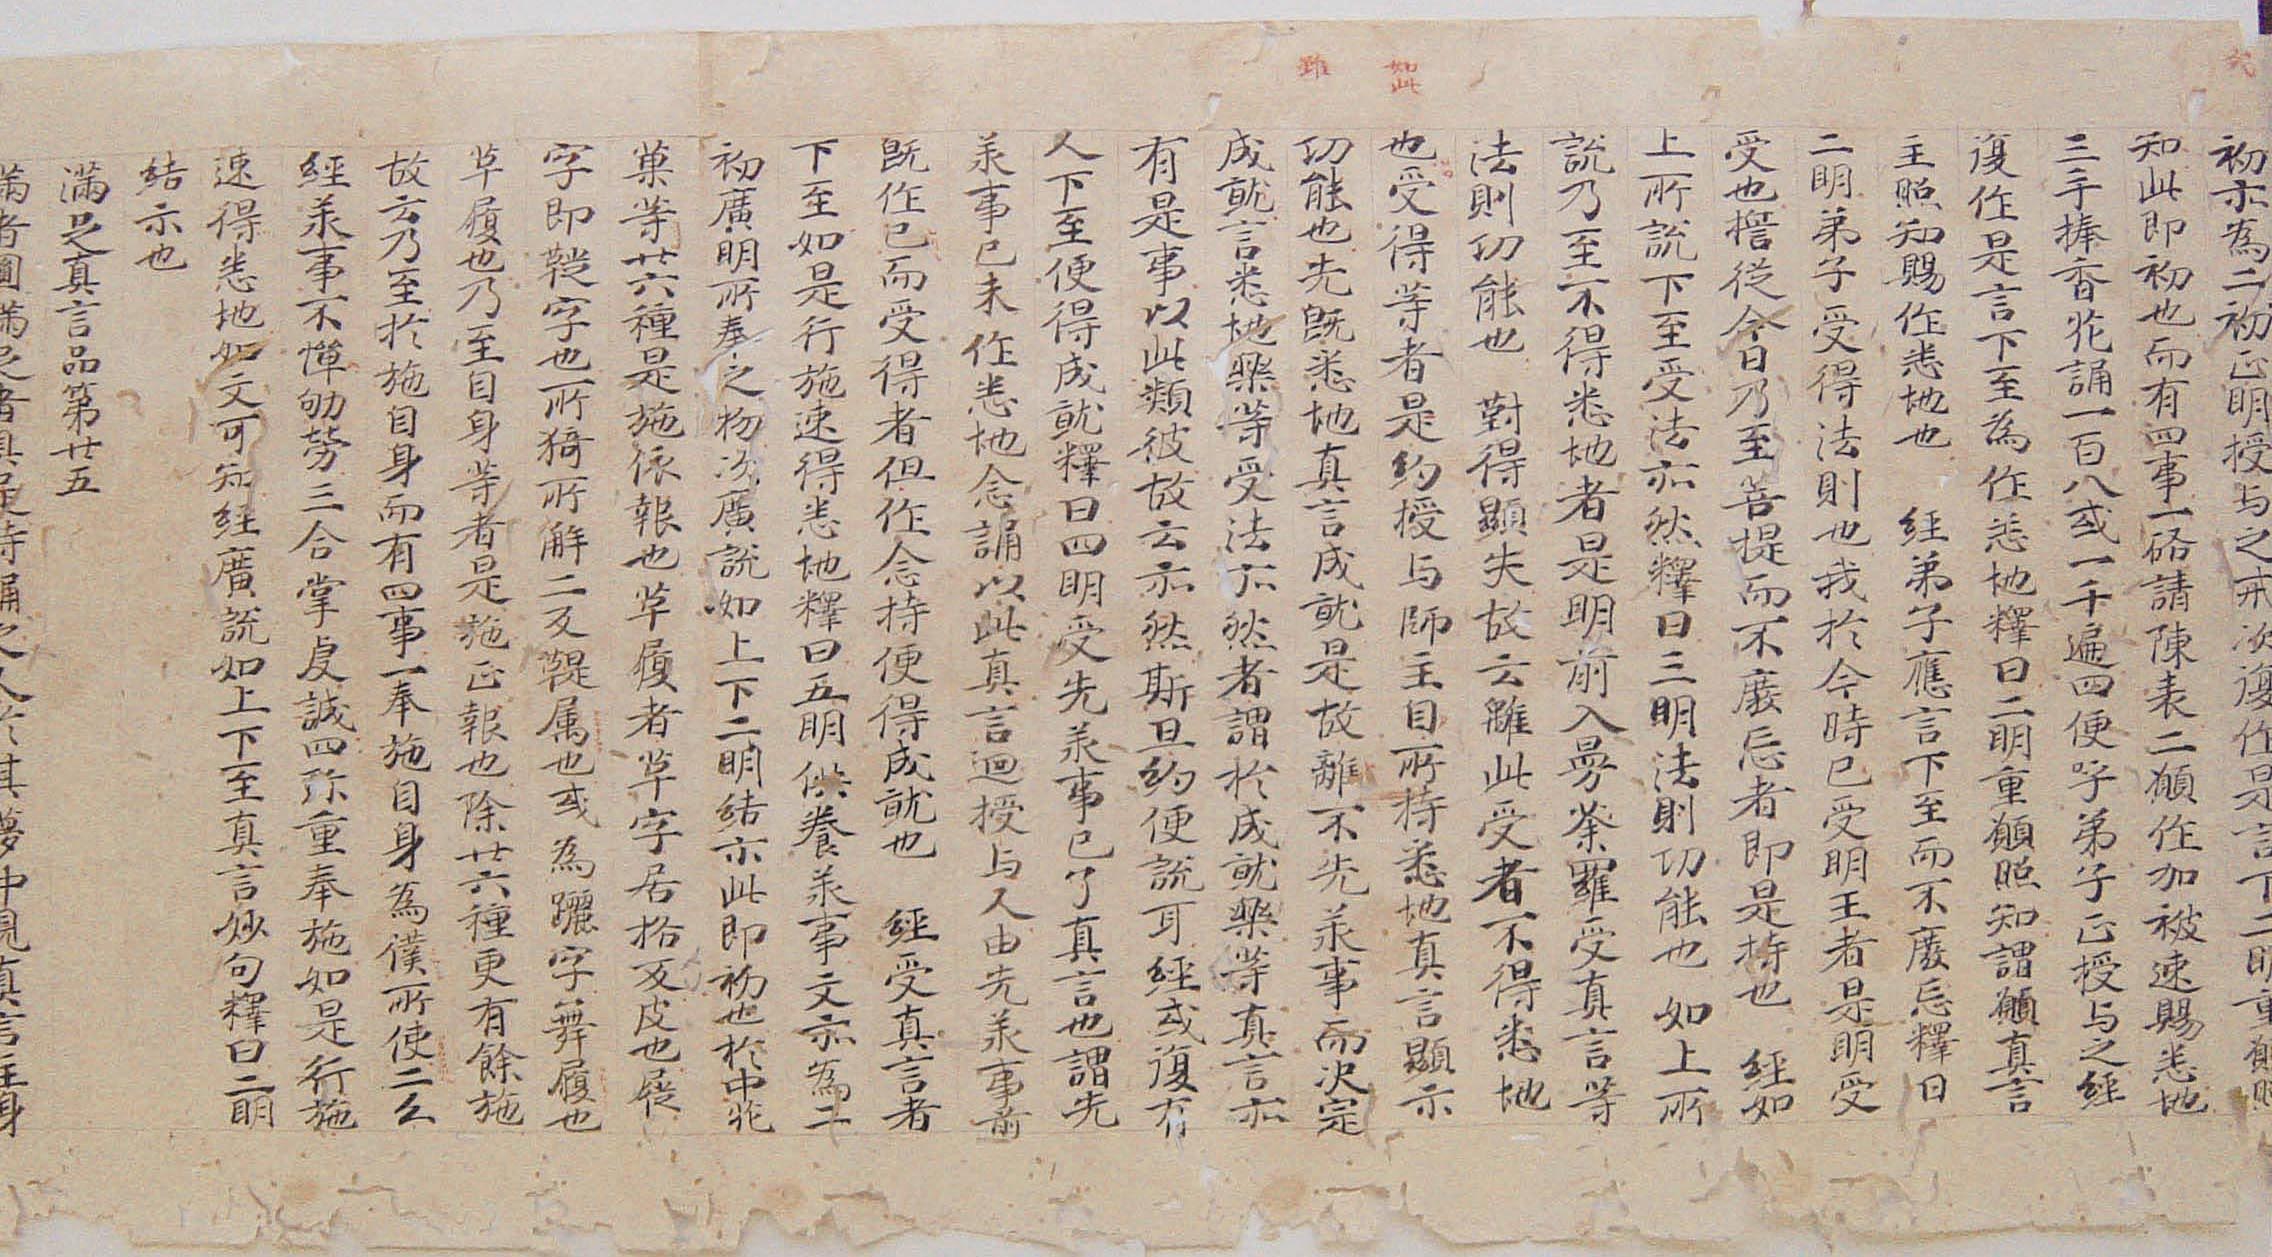 初示為二初正明授与之戒次復作是言下二明重願照
知此即初也而有四事一啓請陳表二願作加被速賜悉地
三手捧香花誦一百八或一千遍四便呼弟子正授与之經
復作是言下至為作悉地釋曰二明重願照知謂願真言
主照知賜作悉地也　經弟子應言下至而不廢忘釋曰
二明弟子受得法則也我於今時已受明王者是明受
受也誓從今日乃至菩提而不廢忘者即是持也　經如
上所說下至受法亦然釋曰三明法則功能也　如上所
說乃至不得悉地者是明前入曼荼羅受真言等
法則功能也　對得顯失故云離此受者不得悉地
也受得等者是約授与師主自所持悉地真言顯示
如此
功能也先既悉地真言成就是故離不先羕事而決定
雖
成就言悉地藥等受法亦然者謂於成就藥等真言亦
有是事以此類彼故云亦然斯且約便說耳經或復有
人下至便得成就釋曰四明受先羕事已了真言也謂先
羕事已未作悉地念誦以此真言迴授与人由先羕事前
既作已而受得者但作念持便得成就也　經受真言者
下至如是行施速得悉地釋曰五明供養羕事文亦為二
初廣明所奉之物次廣說如上下二明結示此即初也於中花
菓等廿六種是施依報也草履者草字居格反皮也屣
字即鞋字也所猗所解二反鞮属也或為躧字舞履也
草履也乃至自身等者是施正報也除廿六種更有餘施
故云乃至於施自身而有四事一奉施自身為僕所使二久
經羕事不憚劬勞三合掌虔誠四殊重奉施如是行施
速得悉地如文可知經廣說如上下至真言妙句釋曰二明
結示也
滿足真言品第廿五
滿者圓滿足者具足持誦之人於其夢中見真言主身